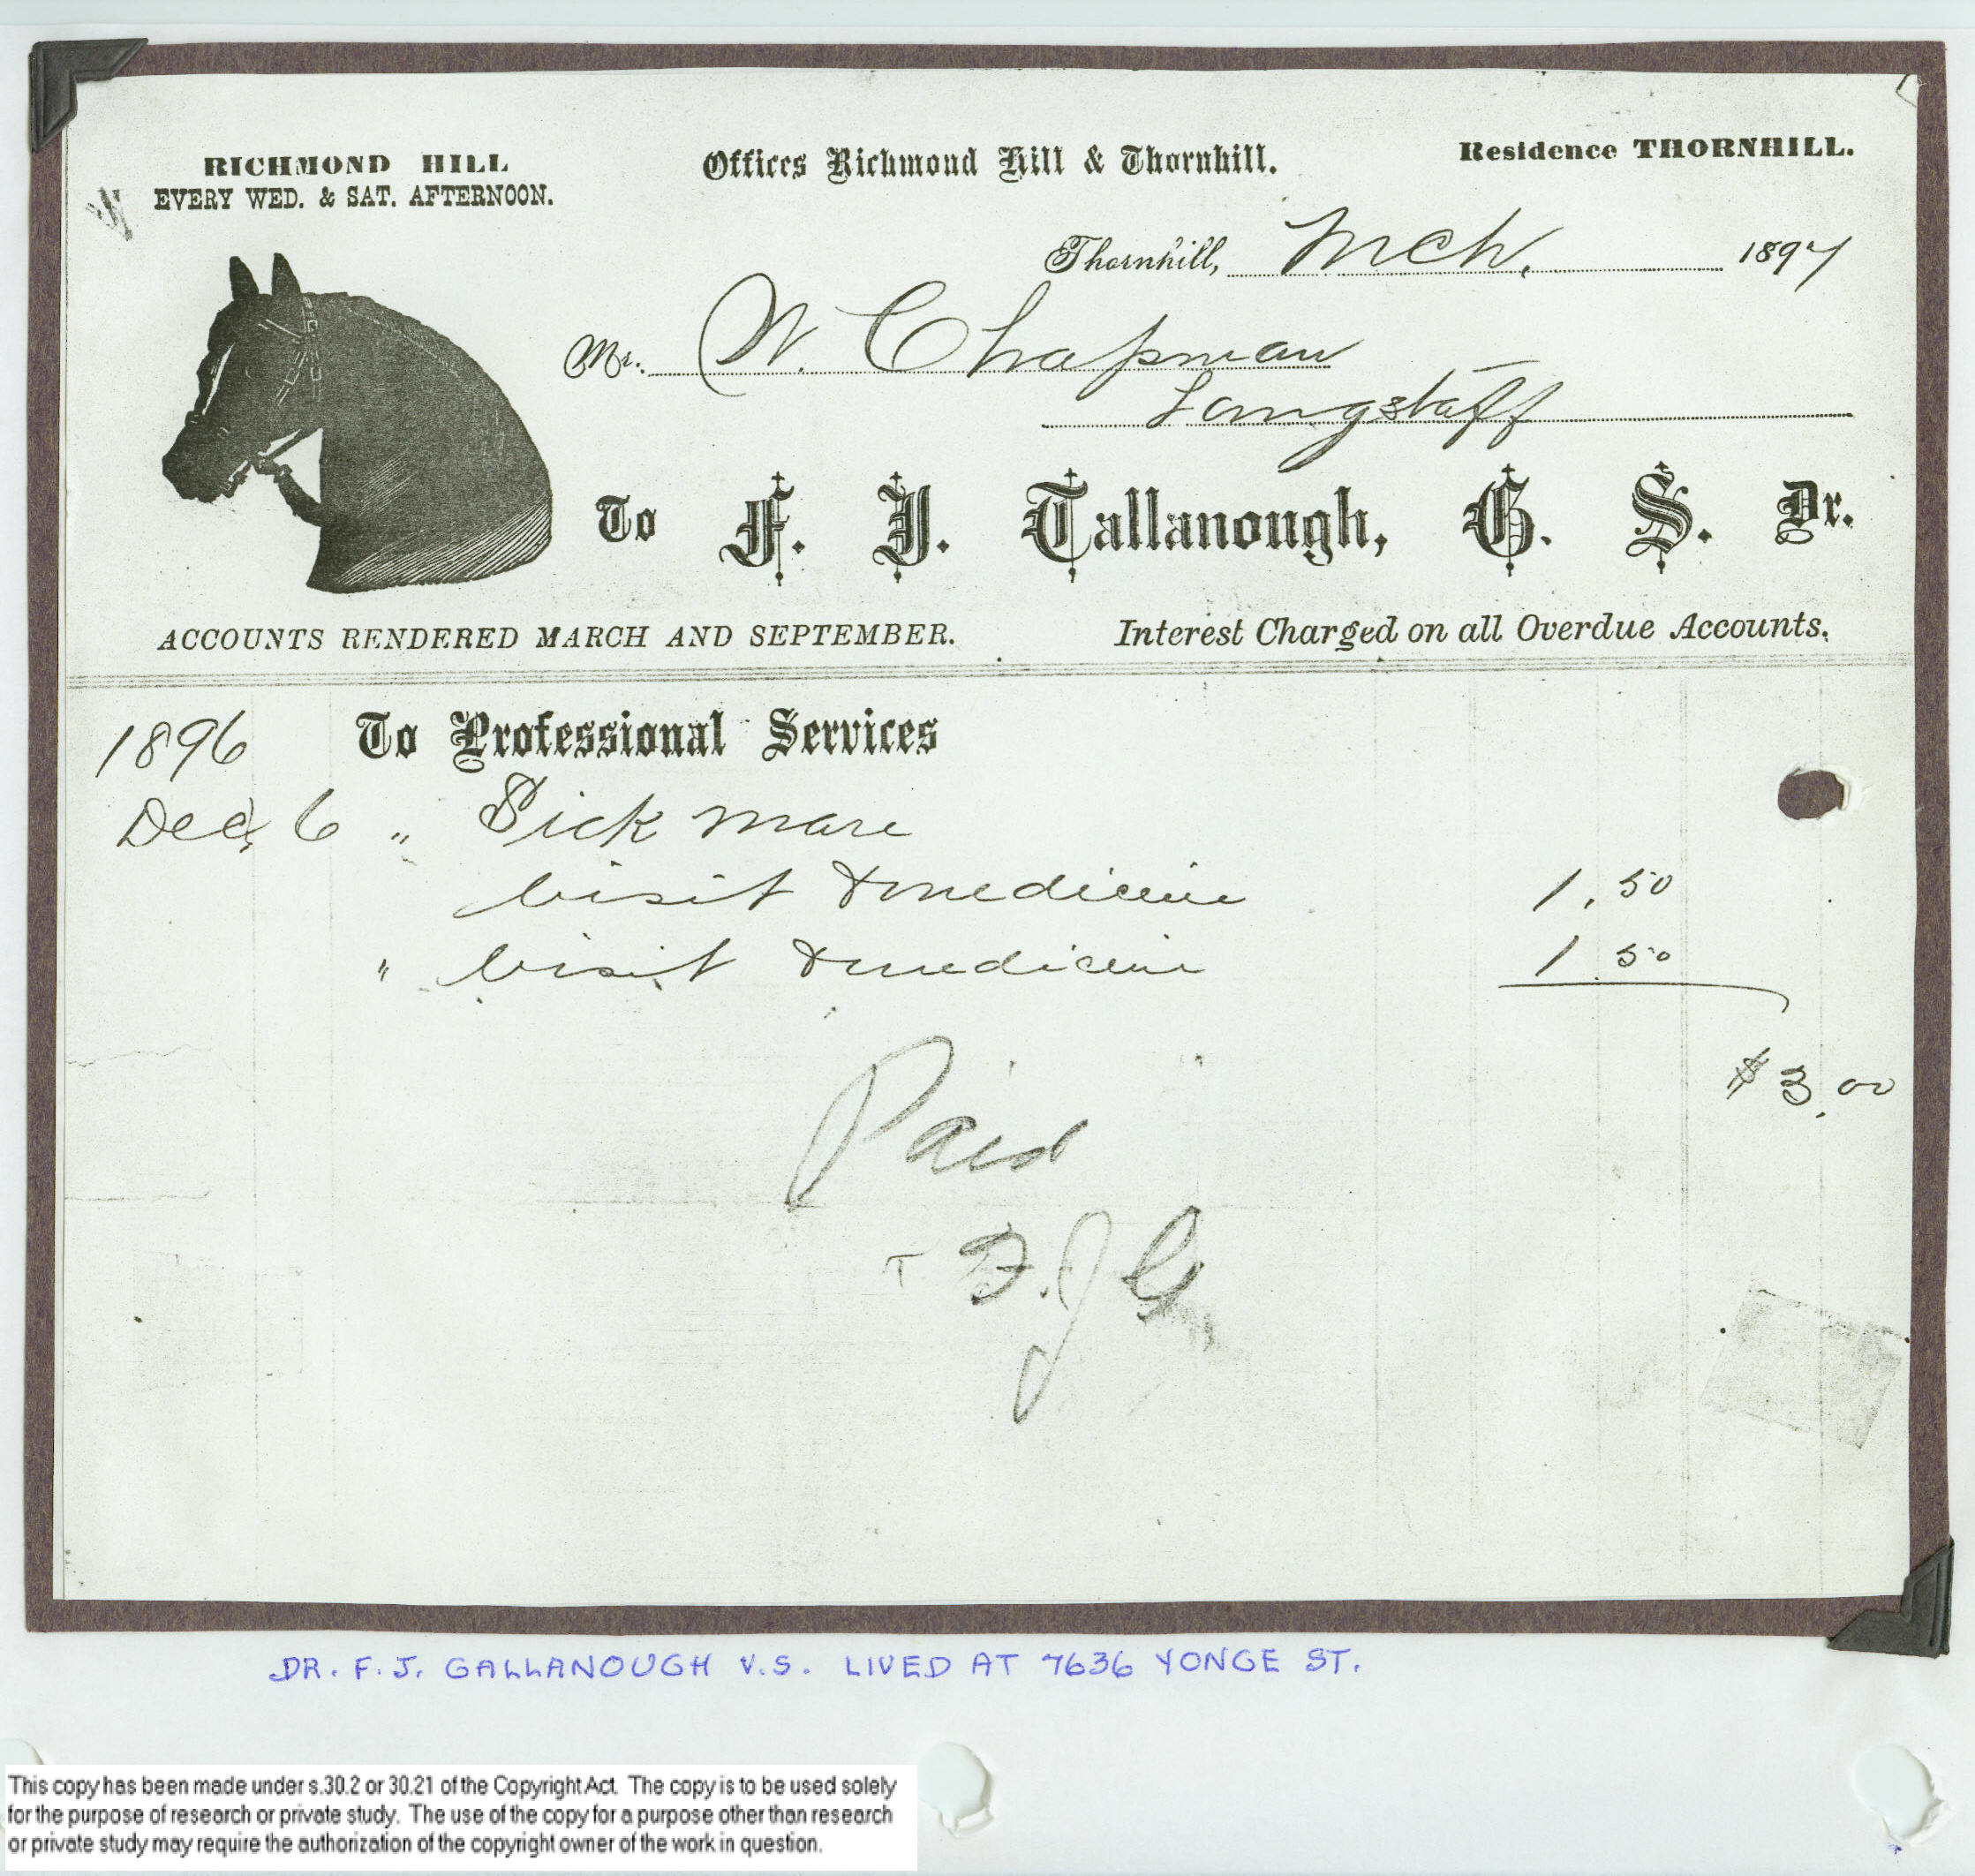 RICHMOND HILL
EVERY WED. & SAT. AFTERNOON.
Offices Richmond Hill & Thornhill.
Residence THORNHILL.
Thornhill, Mch. 1897
Mr. W. Chapman
Langstaff
To F. J. Tallanough, G. S. Dr.
ACCOUNTS RENDERED MARCH AND SEPTEMBER.
Interest Charged on all Overdue Accounts.
1896 To Professional Services
Dec, 6 " Sick mare
Visit & medicine 1.50
" Visit & medicine 1.50
$3.00
Paid
F. J. G
DR. F. J. GALLANOUGH V.S. LIVED AT 7636 YONGE ST.
This copy has been made under s.30.2 or 30.21 of the Copyright Act. The copy is to be used solely
for the purpose of research or private study. The use of the copy for a purpose other than research
or private study may require the authorization of the copyright owner of the work in question.